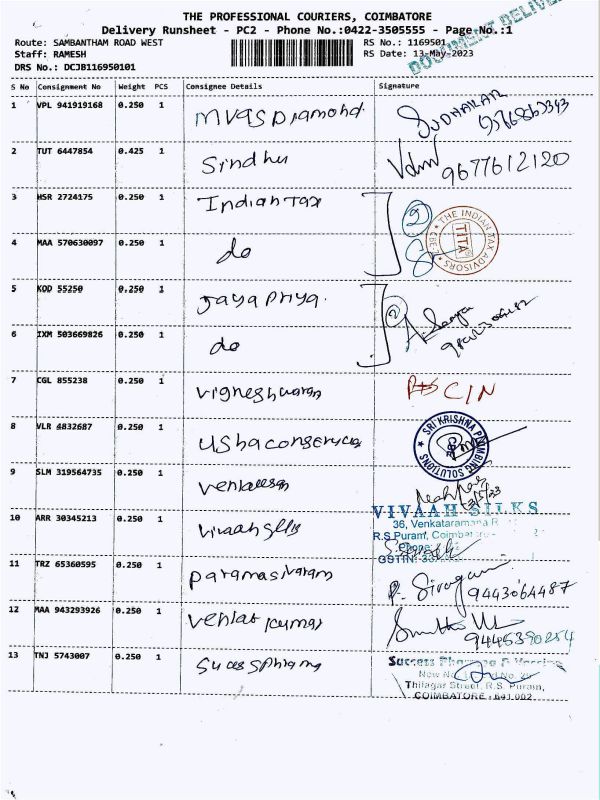 THE PROFESSIONAL COURIERS, COIMBATORE
Delivery Runsheet - PC2 - Phone No.:0422-3505555 - Page No.:1
DOCUMENT DELIVE
Route: SAMBANTHAM ROAD WEST
Staff: RAMESH
DRS No.: DCJB116950101
RS No.: 1169501
RS Date: 13-May-2023
S No Consignment No Weight PCS Consignee Details Signature
1 VPL 941919168 0.250 1 mvas Diamond. SUDHAKAR
2 TUT 6447854 0.425 1 Sindhu 9677612120
3 HSR 2724175 0.250 1 Indian Tax 2
THE INDIAN TAX ADVISORS
TITA
4 MAA 570630097 0.250 1 do
5 KOD 55250 0.250 1 Jaya Priya. 2
6 IXM 503669826 0.250 1 do
7 CGL 855238 0.250 1 vigneshwaran CIN
8 VLR 4832687 0.250 1
SRI KRISHNA PLUMBING SOLUTIONS
9 SLM 319564735 0.250 1 venkatesan
10 ARR 30345213 0.250 1 vivaah silks VIVAAH SILKS
36, Venkataramana R
R.S Puram, Coimbat
Phone:
GSTIN: 33
11 TRZ 65360595 0.250 1 paramasivaram 9443064487
12 MAA 943293926 0.250 1 venkat kumar
13 TNJ 5743007 0.250 1 Success Pharma
Thilagar Street, R.S. Puram,
COIMBATORE - 641 002